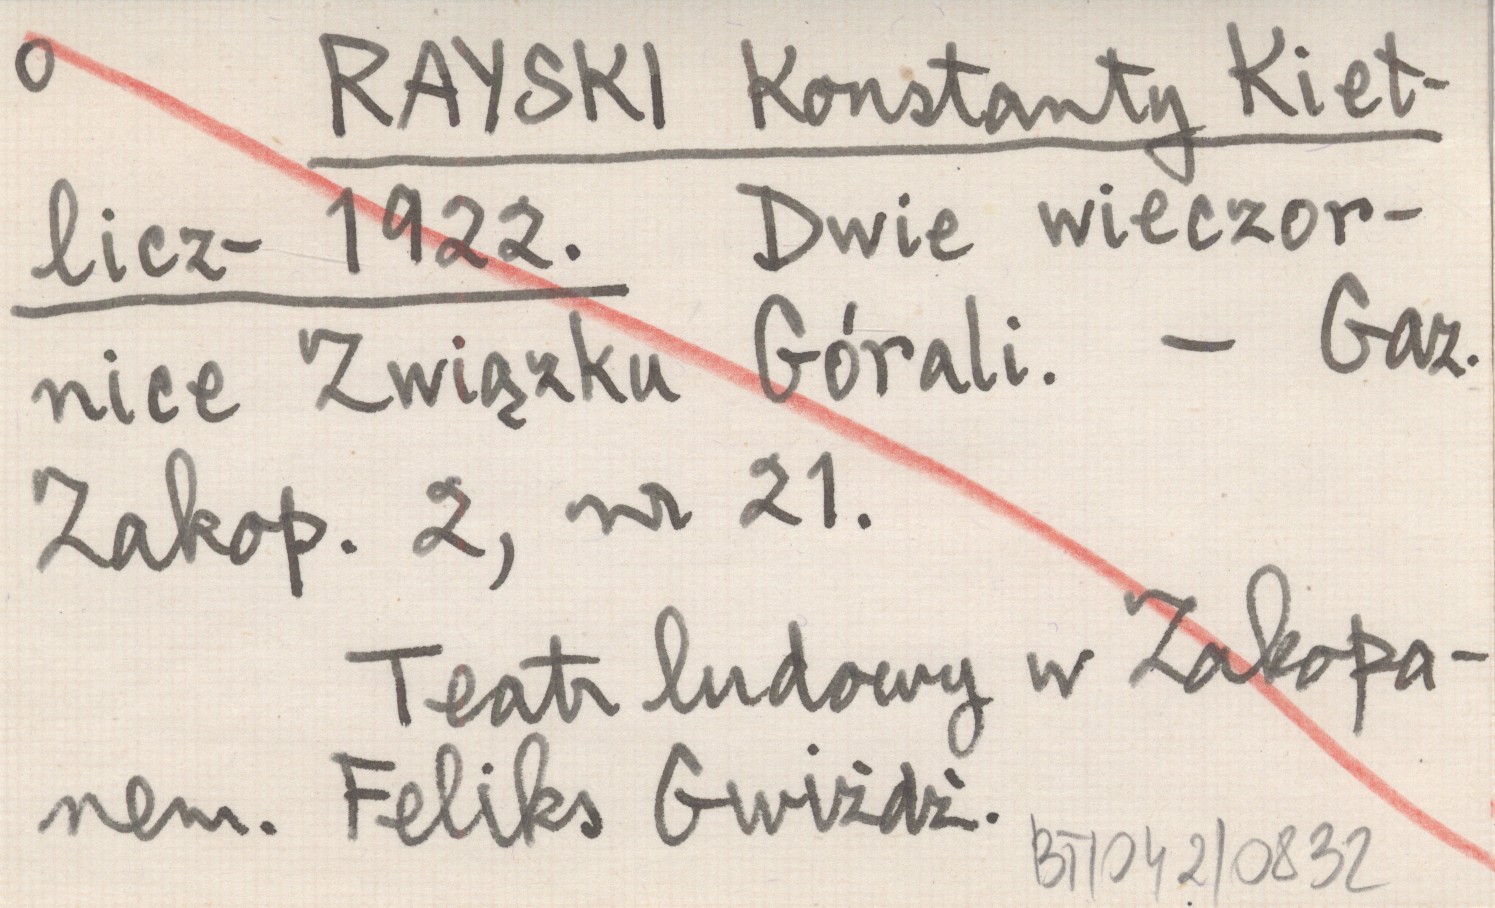 o RAYSKI Konstanty Kiet-
licz- 1922. Dwie wieczor-
nice Związku Górali. – Gaz.
Zakop. 2, nr 21.
Teatr ludowy w Zakopa-
nem. Feliks Gwiżdż.
BT/042/0832